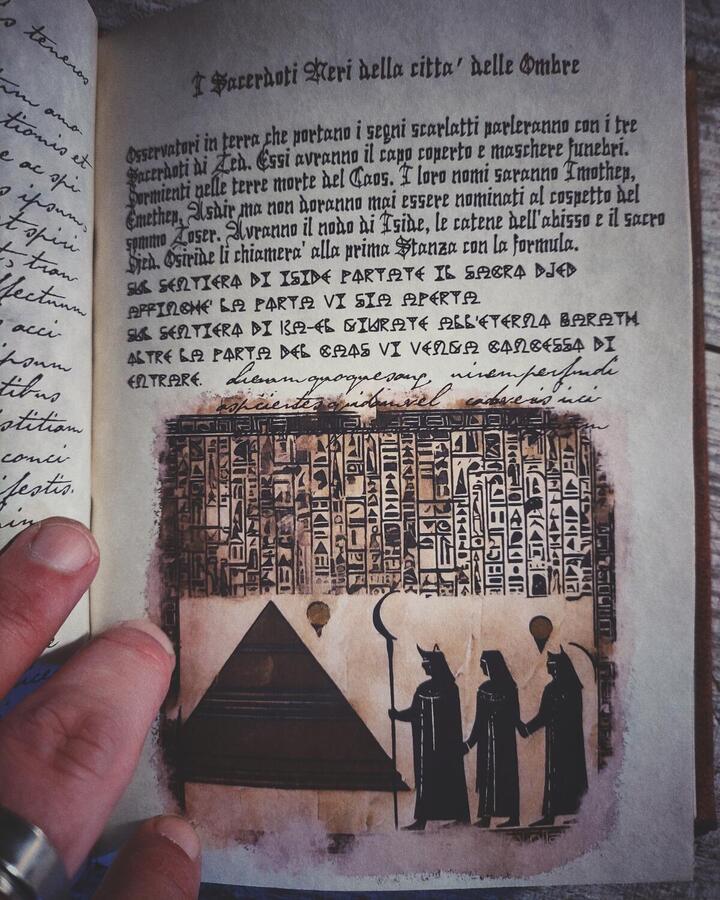 s teneros
um amo
tionis et
e ac spi
s ipsum
t spiri
s, tram
ffectum
acci
ipsum
tibus
stitiam
conci
ifestis.
I Sacerdoti Neri della citta' delle Ombre
Osservatori in terra che portano i segni scarlatti parleranno con i tre
Sacerdoti di Zed. Essi avranno il capo coperto e maschere funebri.
Dormienti nelle terre morte del Caos. I loro nomi saranno Imothep,
Emethep, Asdir ma non doranno mai essere nominati al cospetto del
sommo Zoser. Avranno il nodo di Iside, le catene dell'abisso e il sacro
Djed. Osiride li chiamera' alla prima Stanza con la formula.
SUL SENTIERO DI ISIDE PORTATE IL SACRO DJED
AFFINCHE' LA PORTA VI SIA APERTA
SUL SENTIERO DI KA-EL GIURATE ALL'ETERNO BARATH
OLTRE LA PORTA DEL CAOS VI VENGA CONCESSO DI
ENTRARE. Dierum quoque sang virem perfundi
aspicientes quidam vel cadveris ici